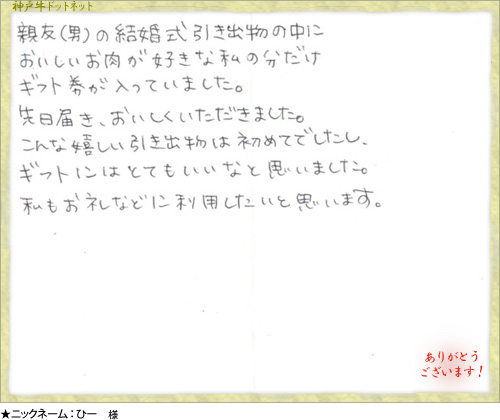 神戸牛ドットネット
親友(男)の結婚式引き出物の中に
おいしいお肉が好きな私の分だけ
ギフト券が入っていました。
先日届き、おいしくいただきました。
こんな嬉しい引き出物は初めてでしたし、
ギフトにはとてもいいなと思いました。
私もお礼などに利用したいと思います。
ありがとう
ございます!
★ニックネーム:ひー 様